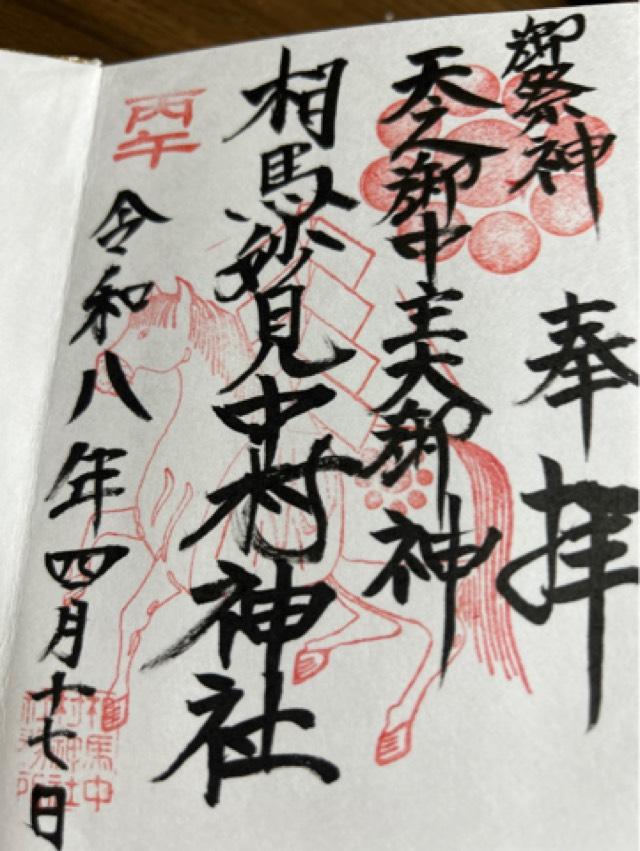 御祭神
奉拝
天之御中主大御神
相馬妙見中村神社
丙午
令和八年四月十七日
相馬中
村神社
社務所